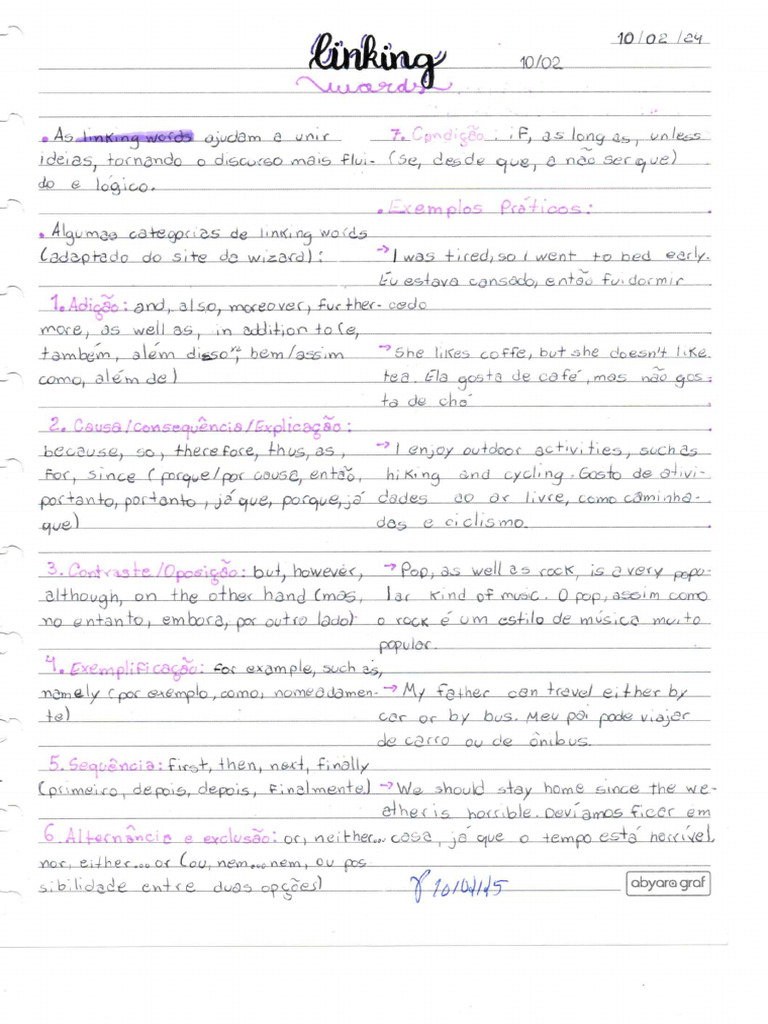 10/02/24
linking
10/02
words
• As linking words ajudam a unir
ideias, tornando o discurso mais flui-
do e lógico.
• Algumas categorias de linking words
(adaptado do site da wizard):
1. Adição: and, also, moreover, further-
more, as well as, in addition to (e,
também, além disso, bem/assim
como, além de)
2. Causa/Consequência/Explicação:
because, so, therefore, thus, as,
for, since (porque/por causa, então,
portanto, portanto, já que, porque, já
que)
3. Contraste/Oposição: but, however,
although, on the other hand (mas,
no entanto, embora, por outro lado)
4. Exemplificação: for example, such as,
namely (por exemplo, como, nomeadamen-
te)
5. Sequência: first, then, next, finally
(primeiro, depois, depois, finalmente)
6. Alternância e exclusão: or, neither...
nor, either... or (ou, nem... nem, ou pos
sibilidade entre duas opções)
7. Condição: if, as long as, unless
(se, desde que, a não ser que)
• Exemplos Práticos:
→ I was tired, so I went to bed early.
Eu estava cansado, então fui dormir
cedo
→ She likes coffe, but she doesn't like
tea. Ela gosta de café, mas não gos-
ta de chá
→ I enjoy outdoor activities, such as
hiking and cycling. Gosto de ativi-
dades ao ar livre, como caminha-
das e ciclismo.
→ Pop, as well as rock, is a very popu-
lar kind of music. O pop, assim como
o rock é um estilo de música muito
popular.
→ My father can travel either by
car or by bus. Meu pai pode viajar
de carro ou de ônibus.
→ We should stay home since the we-
ather is horrible. Devíamos ficar em
casa, já que o tempo está horrível.
abyara graf